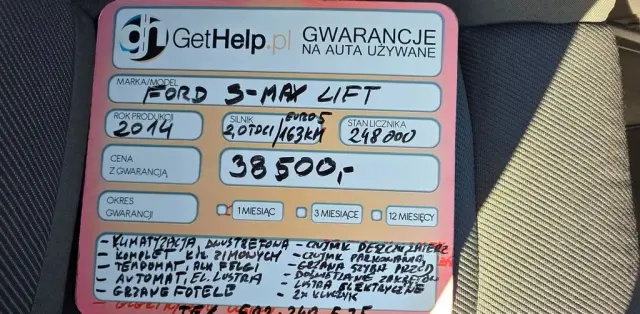 GetHelp.pl GWARANCJE
NA AUTA UŻYWANE
MARKA/MODEL
FORD S-MAX LIFT
ROK PRODUKCJI SILNIK EURO 5 STAN LICZNIKA
2014 2,0TDCI/163KM 248 000
CENA
Z GWARANCJĄ
38500,-
OKRES
GWARANCJI
1 MIESIĄC 3 MIESIĄCE 12 MIESIĘCY
- KLIMATYZACJA DWUSTREFOWA
- KOMPLET KÓŁ ZIMOWYCH
- TEMPOMAT, ALU FELGI
- AUTOMAT, EL. LUSTRA
- GRZANE FOTELE
- CZUJNIK DESZCZU,
- CZUJNIK PARKOWANIA
- GRZANA SZYBA PRZÓD
- DOŚWIETLANIE ZAKRĘTÓW
- LUSTRA ELEKTRYCZNE
- 2x KLUCZYK